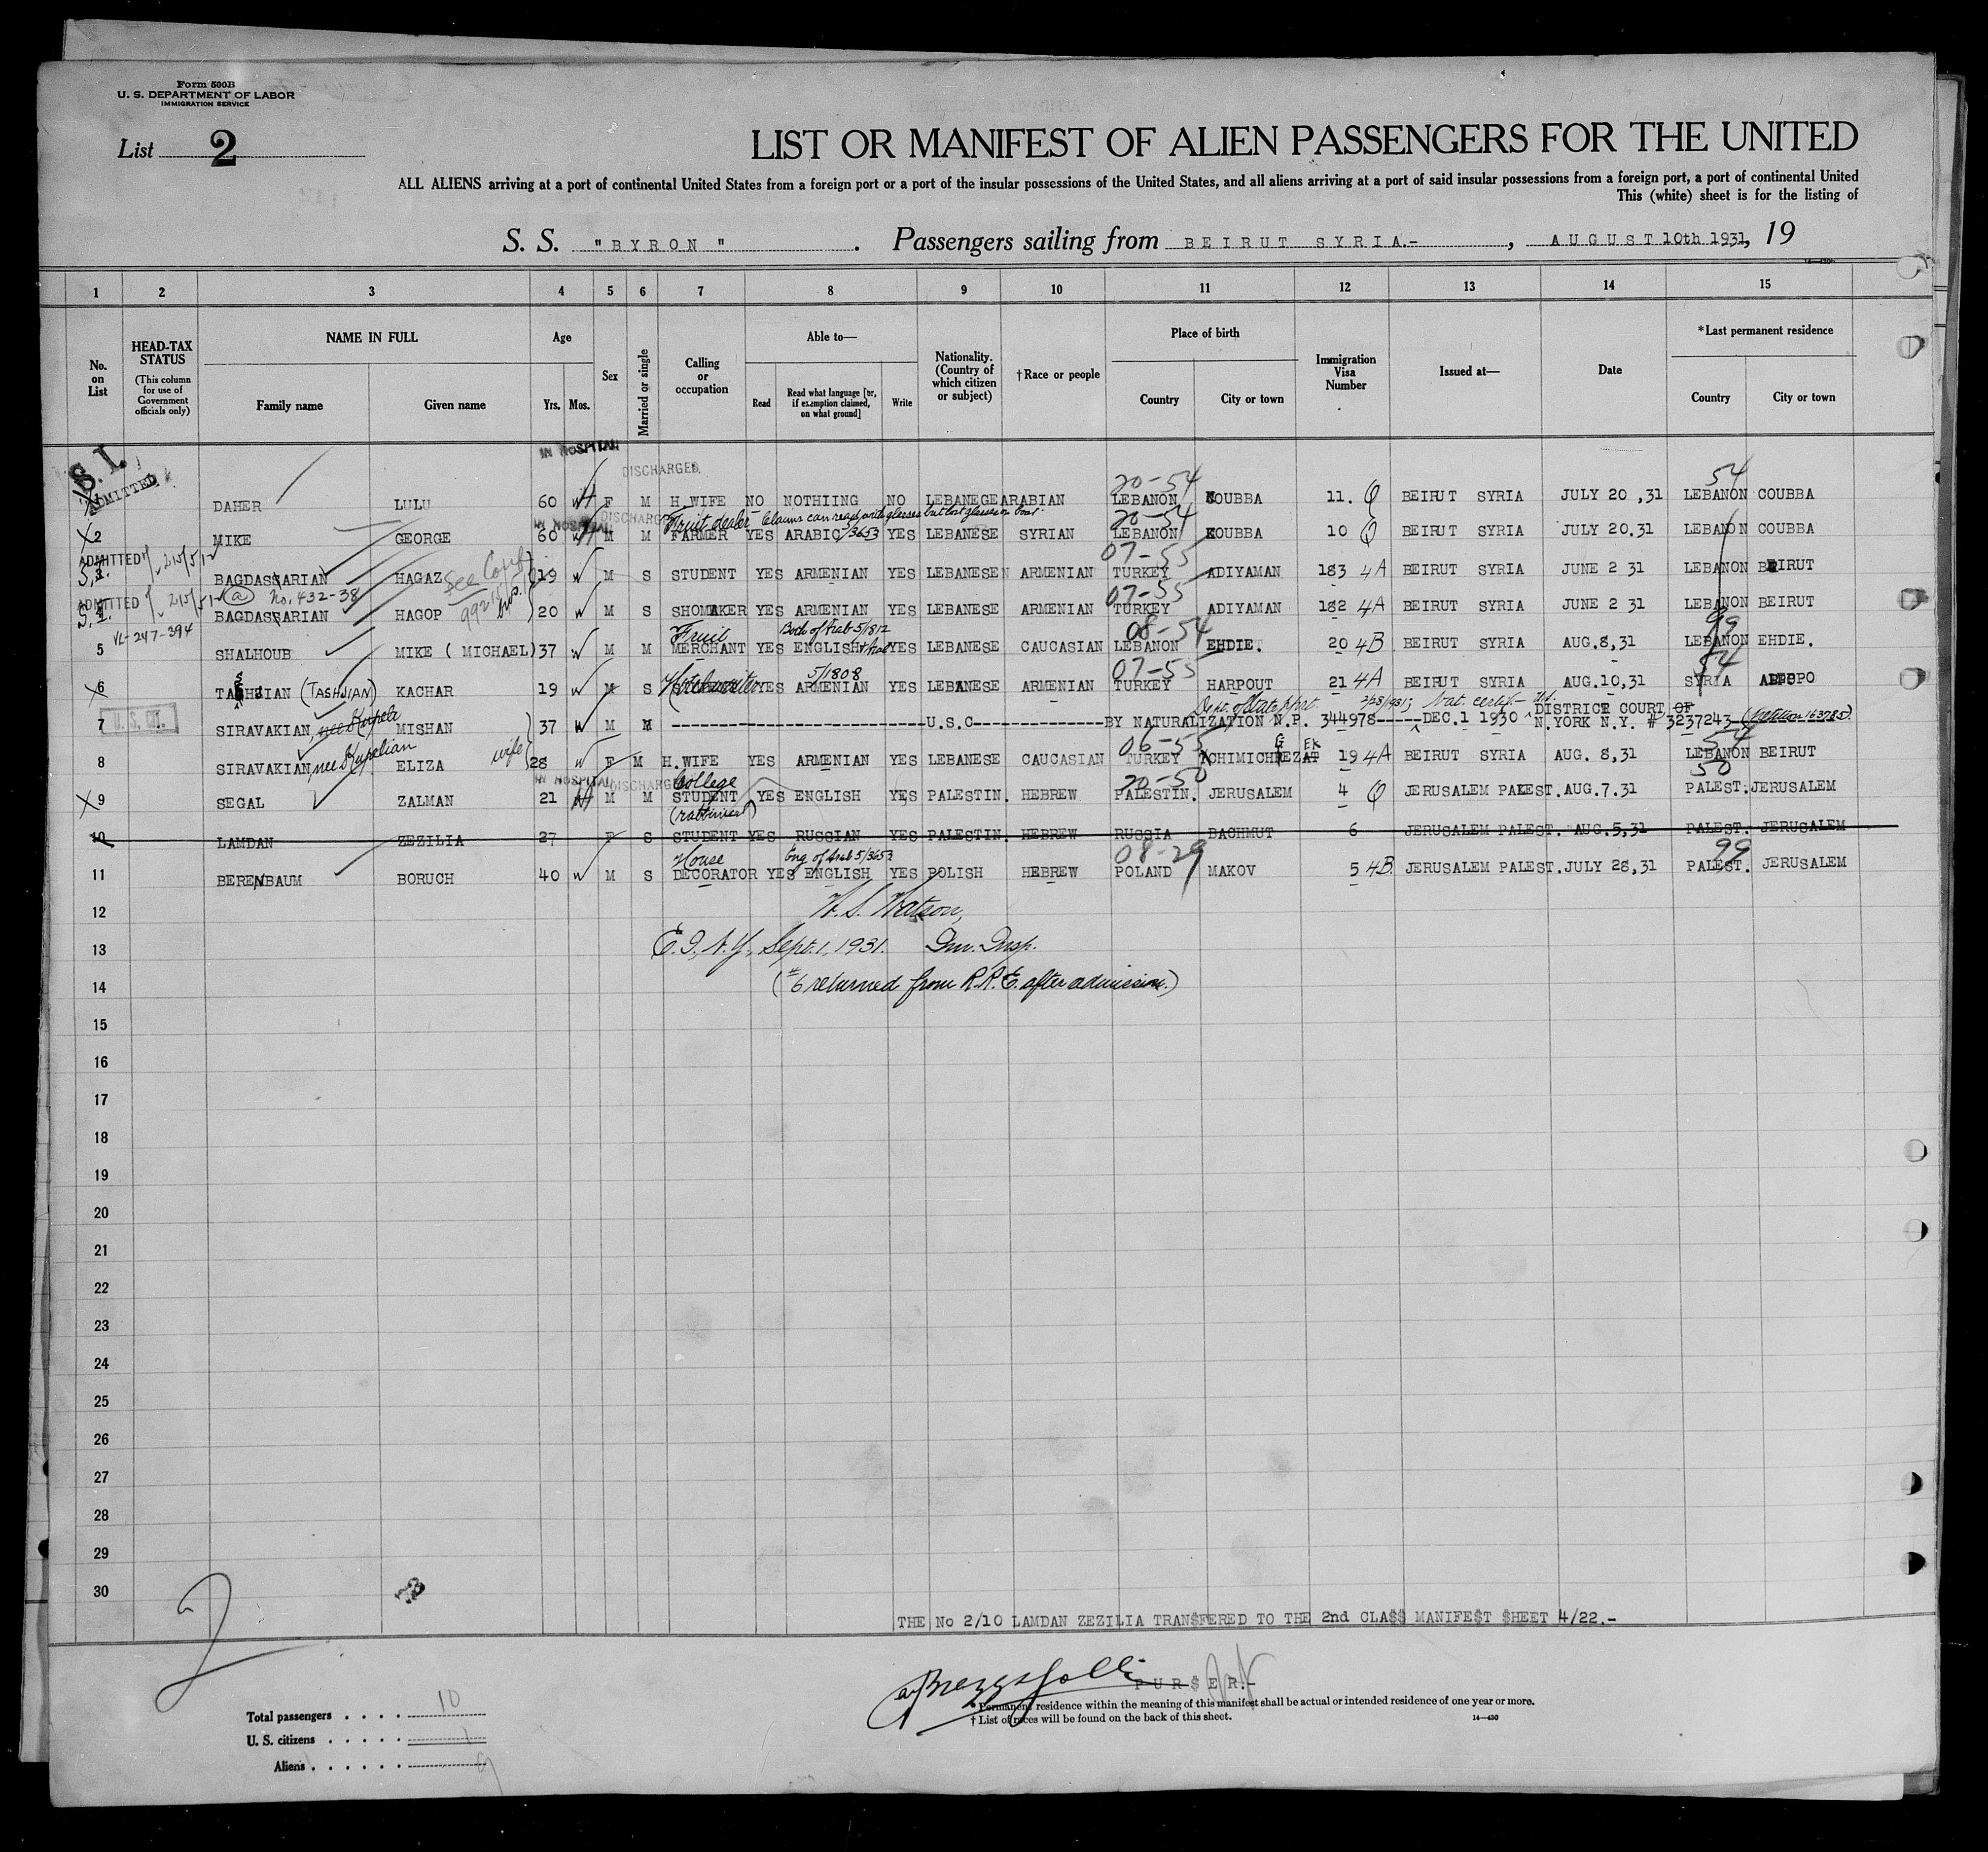 Form 500B
U. S. DEPARTMENT OF LABOR
IMMIGRATION SERVICE
List 2
LIST OR MANIFEST OF ALIEN PASSENGERS FOR THE UNITED
ALL ALIENS arriving at a port of continental United States from a foreign port or a port of the insular possessions of the United States, and all aliens arriving at a port of said insular possessions from a foreign port, a port of continental United
This (white) sheet is for the listing of
S. S. "BYRON". Passengers sailing from BEIRUT SYRIA.-, AUGUST 10th 1931, 19
1 2 3 4 5 6 7 8 9 10 11 12 13 14 15
No. on List
HEAD-TAX STATUS (This column for use of Government officials only)
NAME IN FULL
Family name Given name
Age
Yrs. Mos.
Sex
Married or single
Calling or occupation
Able to—
Read Read what language [or, if exemption claimed, on what ground] Write
Nationality. (Country of which citizen or subject)
†Race or people
Place of birth
Country City or town
Immigration Visa Number
Issued at—
Date
*Last permanent residence
Country City or town
IN HOSPITAL
DISCHARGED
S.I.
ADMITTED
20-54 54
DAHER LULU 60 F M H.WIFE NO NOTHIING NO LEBANEGE ARABIAN LEBANON COUBBA 11. Q BEIRUT SYRIA JULY 20,31 LEBANON COUBBA
IN HOSPITAL DISCHARGED Fruit dealer - Claims can read with glasses but lost glasses on boat. 20-54
2 MIKE GEORGE 60 M M FARMER YES ARABIC 3653 YES LEBANESE SYRIAN LEBANON KOUBBA 10 Q BEIRUT SYRIA JULY 20.31 LEBANON COUBBA
ADMITTED 07-55
S.I. 3 BAGDASSARIAN HAGAZ 19 W M S STUDENT YES ARMENIAN YES LEBANESEN ARMENIAN TURKEY ADIYAMAN 183 4A BEIRUT SYRIA JUNE 2 31 LEBANON BEIRUT
ADMITTED No. 432-38 See 07-55
S.I. 4 BAGDASSARIAN HAGOP bros. 20 W M S SHOMAKER YES ARMENIAN YES LEBANESE ARMENIAN TURKEY ADIYAMAN 182 4A BEIRUT SYRIA JUNE 2 31 LEBANON BEIRUT
VL-247-394 Fruit Both of Arab 5/1812 08-54 99
5 SHALHOUB MIKE ( MICHAEL) 37 W M M MERCHANT YES ENGLISH YES LEBANESE CAUCASIAN LEBANON EHDIE. 20 4B BEIRUT SYRIA AUG.8,31 LEBANON EHDIE.
5/1808 07-55 54
6 (TASHJIAN) KACHAR 19 W M S YES ARMENIAN YES LEBANESE ARMENIAN TURKEY HARPOUT 21 4A BEIRUT SYRIA AUG.10,31 SYRIA
U. S. CIT. Dept. of State Pprt. Nat. certif. DISTRICT COURT OF
7 SIRAVAKIAN, MISHAN 37 W M M U.S.C. BY NATURALIZATION N.P. 344978 DEC.1 1930 N.YORK N.Y. # 3237243 (Petition 163785).
06-55 54
8 SIRAVAKIAN, nee Kupelian ELIZA wife 28 W F M H.WIFE YES ARMENIAN YES LEBANESE CAUCASIAN TURKEY 19 4A BEIRUT SYRIA AUG. 8,31 LEBANON BEIRUT
IN HOSPITAL DISCHARGED College 20-50 50
9 SEGAL ZALMAN 21 M M STUDENT YES ENGLISH YES PALESTIN. HEBREW PALESTIN. JERUSALEM 4 Q JERUSALEM PALEST. AUG.7.31 PALEST. JERUSALEM
(rabbinical)
10 LAMDAN ZEZILIA 27 F S STUDENT YES RUSSIAN YES PALESTIN. HEBREW RUSSIA BACHMUT 6 JERUSALEM PALEST. AUG.5,31 PALEST. JERUSALEM
House Eng. of Arab 5/3653 08-29 99
11 BERENBAUM BORUCH 40 W M S DECORATOR YES ENGLISH YES POLISH HEBREW POLAND MAKOV 5 4B JERUSALEM PALEST. JULY 28,31 PALEST. JERUSALEM
12 W. S. Watson,
13 E.I., N.Y., Sept. 1, 1931. Imm. Insp.
14 (#6 returned from R.R.E. after admission.)
15
16
17
18
19
20
21
22
23
24
25
26
27
28
29
30
THE No 2/10 LAMDAN ZEZILIA TRAN$FERED TO THE 2nd CLA$$ MANIFE$T $HEET 4/22.-
PUR$ER.-
* Permanent residence within the meaning of this manifest shall be actual or intended residence of one year or more.
† List of races will be found on the back of this sheet.
14—430
Total passengers . . . . 10
U. S. citizens . . . . . 1
Aliens . . . . . . 9